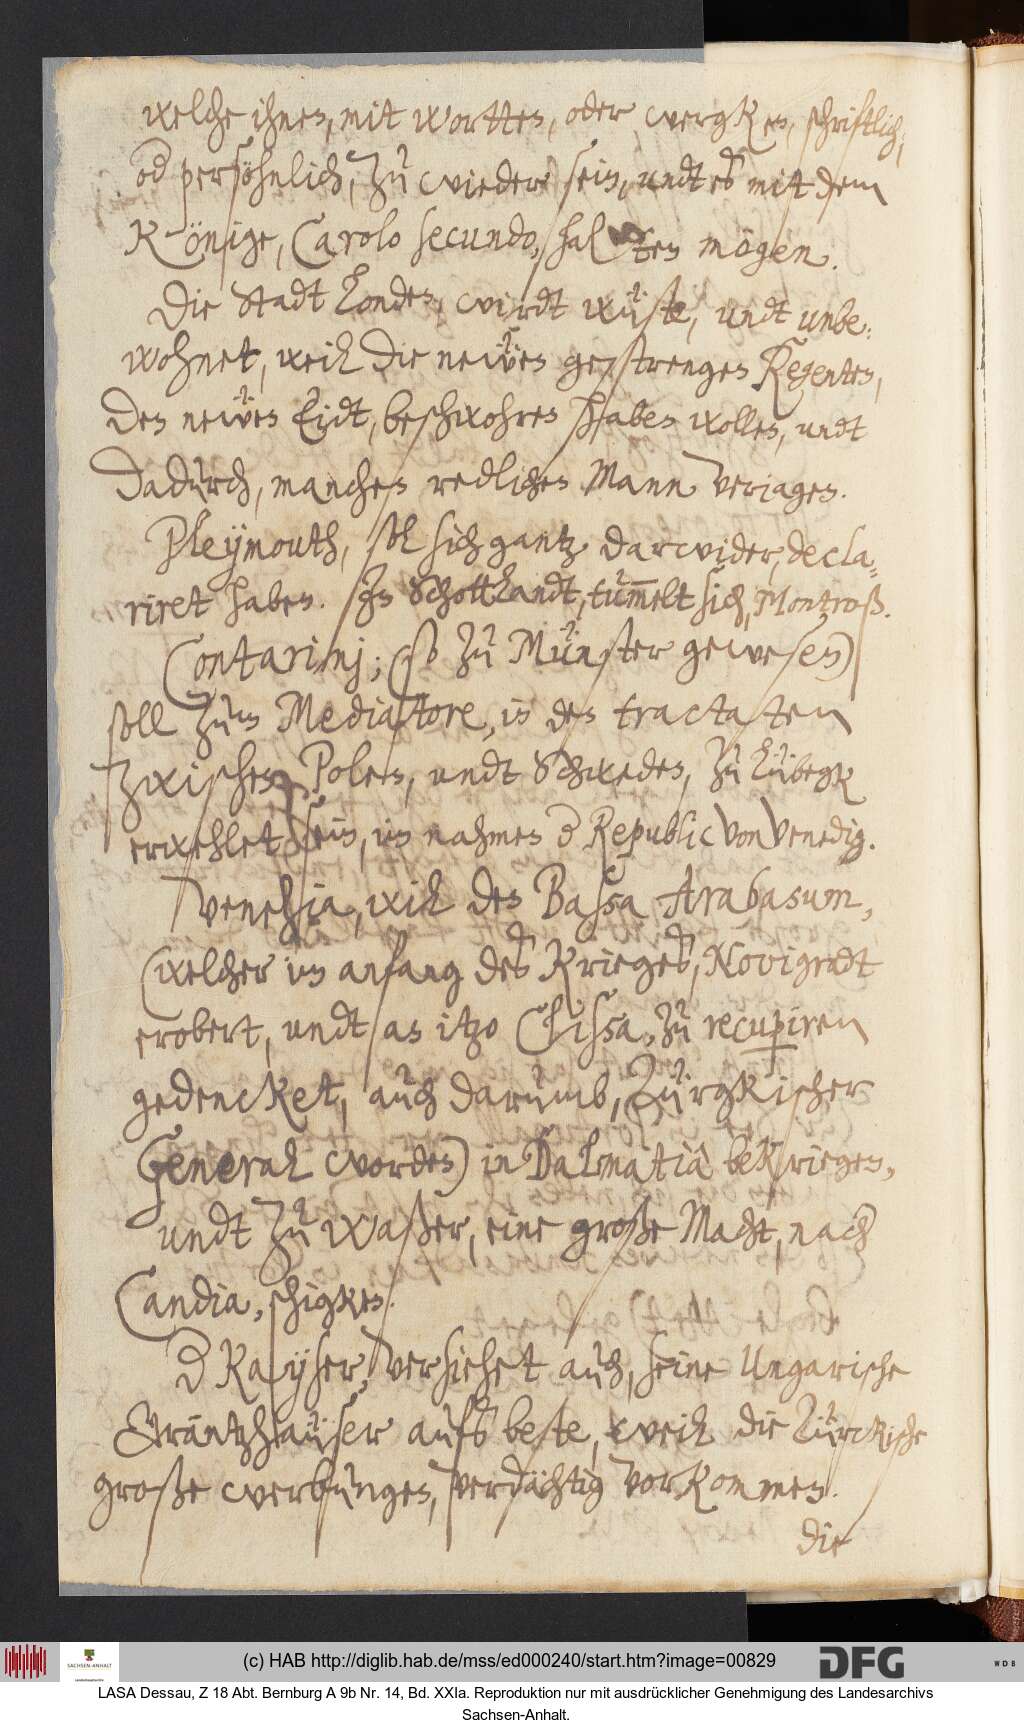 welche ihnen, mit wortten, oder wergken, schriftlich,
od persöhnlich, zu wieder sein, undt es mit dem
Könige, Carolo secundo, halten mögen.
Die Stadt Londen, wirdt wüste, undt unbe:
wohnet, weil die neẅen gestrengen Regenten,
den neẅen Eidt, beschwohren haben wollen, undt
dadurch, manchen redlichen Mann verjagen.
Pleymouth, sol sich gantz darwider, decla=
riret haben. In Schottlandt, tum̅elt sich, Montroß.
Contarinj; (so zu Münster gewesen)
soll zum Mediatore, in den tractaten
zwischen Polen, undt Schweden, zu Lübegk
erwehlet sein, im nahmen d Republic von Venedig.
Venetzia, will den Bassa Arabasum,
(welcher im anfang des Krieges, Novigradt
erobert, undt an itzo Clissa, zu recup̲iren
gedencket, auch darumb, Türgkischer
General worden) in Dalmatia bekriegen,
undt zu Waßer, eine große Macht, nach
Candia, schigken.
D Kayser, versiehet auch, seine Ungarische
Gräntzhäuser aufs beste, weil die Türckische
große werbungen, verdächtig vorkommen.
die
(c) HAB http://diglib.hab.de/mss/ed000240/start.htm?image=00829
SACHSEN-ANHALT
DFG
WDB
LASA Dessau, Z 18 Abt. Bernburg A 9b Nr. 14, Bd. XXIa. Reproduktion nur mit ausdrücklicher Genehmigung des Landesarchivs
Sachsen-Anhalt.